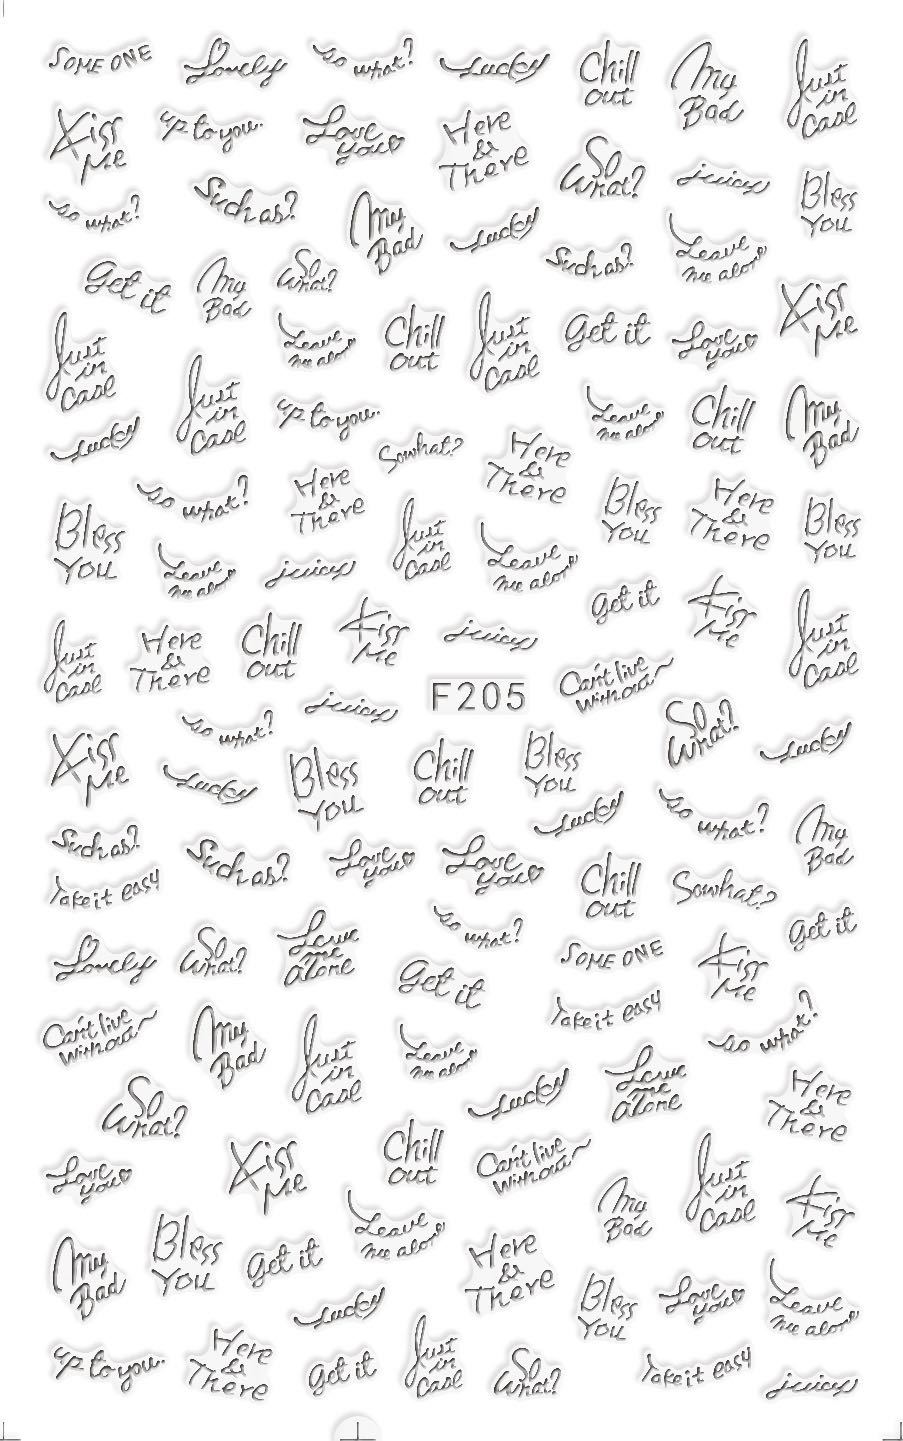 SOME ONE
Lovely
so what?
Lucky
Chill
out
My
Bad
Just
in
Case
Kiss
Me
up to you.
Love
you♡
Here
&
There
So
What?
juicy
Bless
You
so what?
Such as?
My
Bad
Lucky
Such as?
Leave
me alone
Get it
My
Bad
So
What?
Kiss
Me
Just
in
Case
Leave
me alone
Chill
out
Just
in
Case
Get it
Love
you♡
Just
in
Case
up to you.
Leave
me alone
Chill
out
My
Bad
Lucky
So what?
Here
&
There
so what?
Here
&
There
Bless
You
Here
&
There
Bless
You
Bless
You
Just
in
Case
Leave
me alone
Leave
me alone
juicy
get it
Kiss
Me
Just
in
Case
Just
in
Case
Here
&
There
Chill
out
Kiss
Me
juicy
Can't live
Without
F205
juicy
so what?
So
What?
Lucky
Kiss
Me
Lucky
Bless
You
Chill
out
Bless
You
Lucky
so what?
My
Bad
Such as?
Such as?
Love
you♡
Love
you♡
Chill
out
So what?
Take it easy
so what?
get it
Lovely
So
What?
Leave
me
alone
Get it
SOME ONE
Kiss
Me
Can't live
Without
My
Bad
Just
in
Case
Leave
me alone
Take it easy
so what?
So
What?
Lucky
Leave
me
alone
Here
&
There
Love
you♡
Kiss
Me
Chill
out
Can't live
Without
Just
in
Case
My
Bad
Kiss
Me
My
Bad
Bless
You
get it
Leave
me alone
Here
&
There
Bless
You
Love
you♡
Leave
me alone
Lucky
up to you.
Here
&
There
get it
Just
in
Case
So
What?
Take it easy
juicy